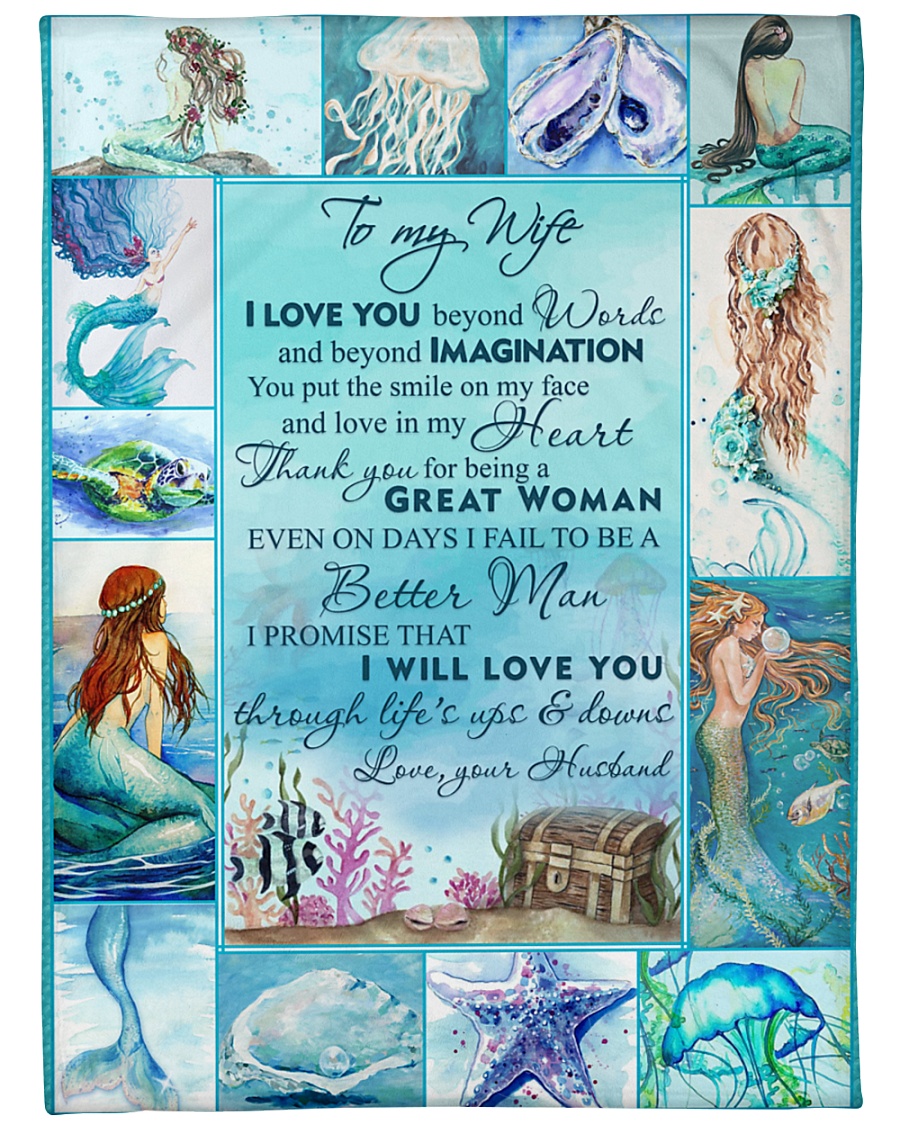 To my Wife
I LOVE YOU beyond Words
and beyond IMAGINATION
You put the smile on my face
and love in my Heart
Thank you for being a
GREAT WOMAN
EVEN ON DAYS I FAIL TO BE A
Better Man
I PROMISE THAT
I WILL LOVE YOU
through life's ups & downs
Love, your Husband